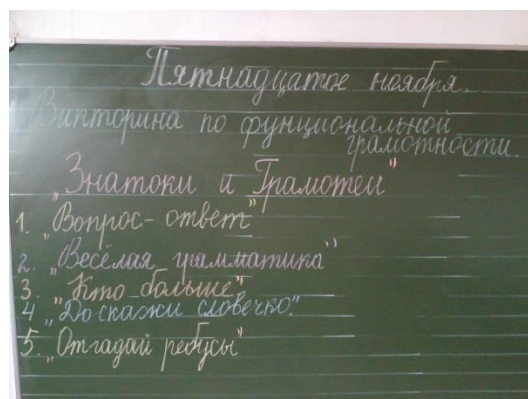 Пятнадцатое ноября.
Викторина по фунциональной
грамотности.
„Знатоки и Грамотеи"
1. „Вопрос-ответ"
2. „Весёлая грамматика"
3. „Кто больше"
4 „До скажи словечко."
5. „Отгадай ребусы"